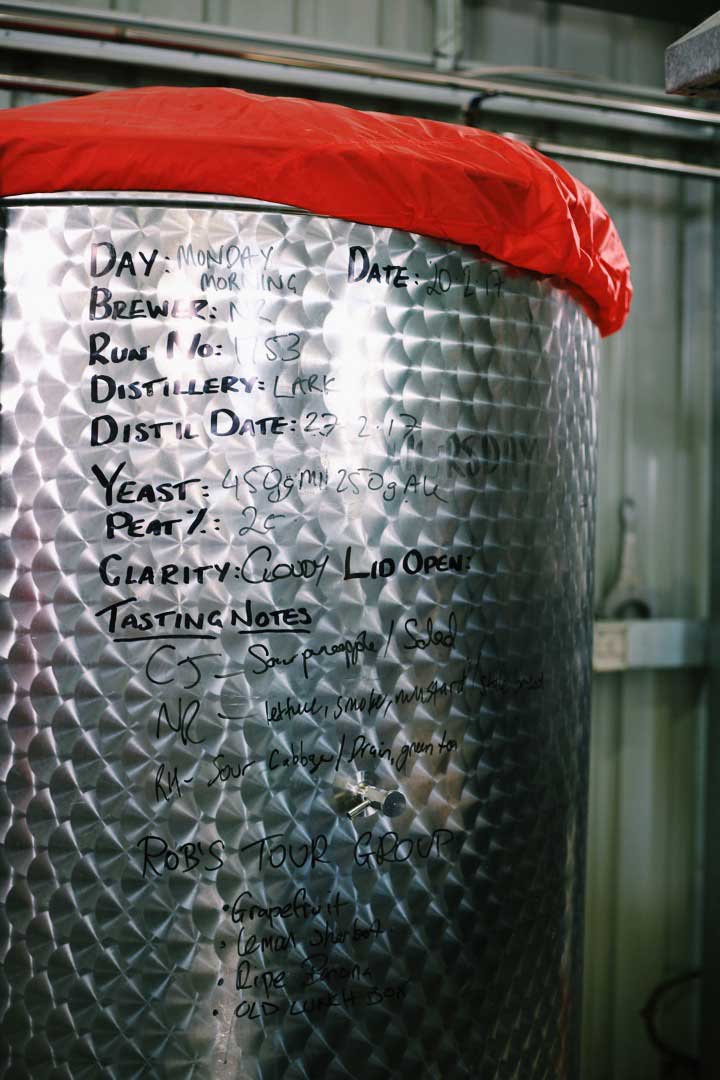 DAY: MONDAY MORNING DATE: 20.2.17
BREWER: NR
RUN NO: 1753
DISTILLERY: LARK
DISTIL DATE: 23 2.17
THURSDAY
YEAST: 450g MN 250g
PEAT %:
CLARITY: Cloudy LID OPEN:
TASTING NOTES
CJ - Sour pineapple / Salad
NR - lettuce, smoke, mustard /
RH - Sour Cabbage / Drain, green tea
ROB'S TOUR GROUP
• Grapefruit
• Lemon sherbet
• Ripe Banana
• OLD LUNCH BOX